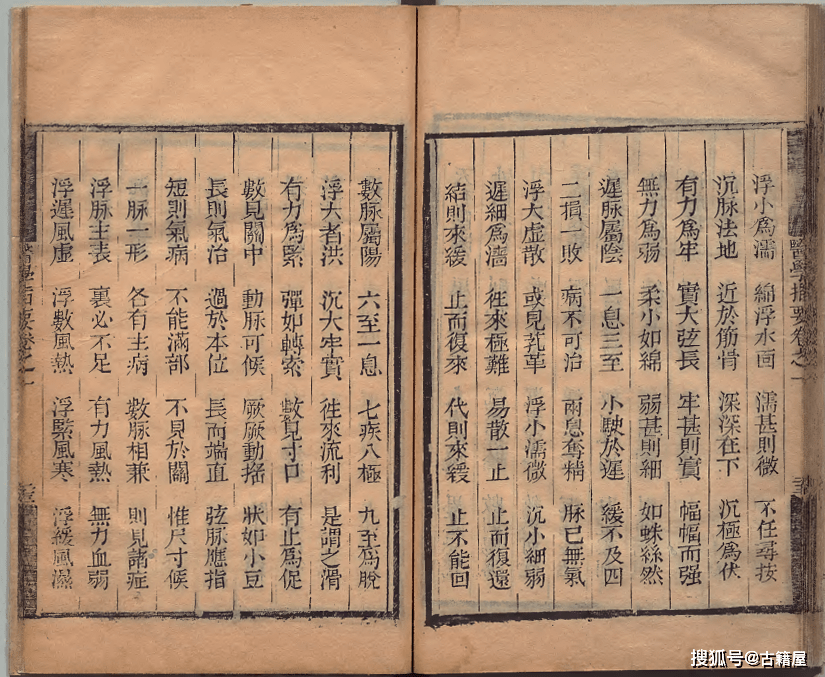 醫學指要卷之一
浮小爲濡 綿浮水面 濡甚則微 不任尋按
沉脉法地 近於筋骨 深深在下 沉極爲伏
有力爲牢 實大弦長 牢甚則實 幅幅而强
無力爲弱 柔小如綿 弱甚則細 如蛛絲然
遲脉屬陰 一息三至 小駛於遲 緩不及四
二損一敗 病不可治 兩息奪精 脉已無氣
浮大虛散 或見芤革 浮小濡微 沉小細弱
遲細爲濇 徃來極難 易散一止 止而復還
結則來緩 止而復來 代則來緩 止不能回
數脉屬陽 六至一息 七疾八極 九至爲脫
浮大者洪 沉大牢實 徃來流利 是謂之滑
有力爲緊 彈如轉索 數見寸口 有止爲促
數見關中 動脉可候 厥厥動搖 狀如小豆
長則氣治 過於本位 長而端直 弦脉應指
短則氣病 不能滿部 不見於關 惟尺寸候
一脉一形 各有主病 數脉相兼 則見諸症
浮脉主表 裏必不足 有力風熱 無力血弱
浮遲風虛 浮數風熱 浮緊風寒 浮緩風濕
醫學指要卷之一
搜狐号@古籍屋